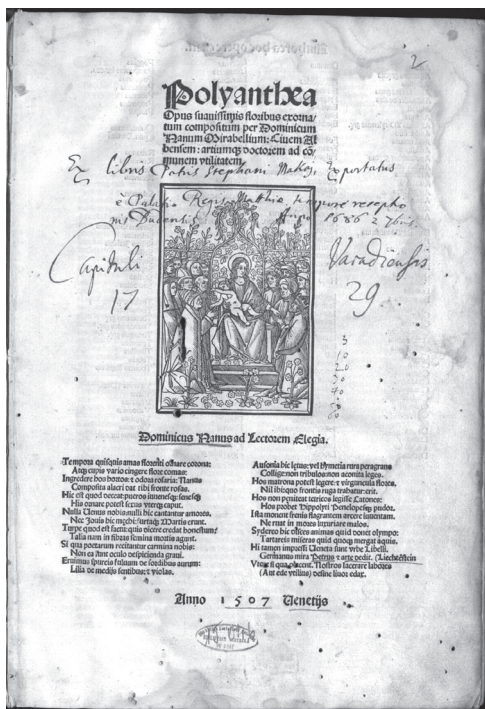 2
Polyanthea
Opus suauissimis floribus exorna/
tum compositum per Dominicum
Nanum Mirabellium: Ciuem Al
bensem: artiumqƺ doctorem ad cō/
munem vtilitatem
Ex libris Patis Stephani Exportatus
è Palatio Regis Matthiæ, tempore
Anno 1686 2
Capituli Varadiensis
17 29
Dominicus Nanus ad Lectorem Elegia.
Tempora quisquis amas florenti ornare corona:
Atqƺ cupis vario cingere flore comas:
Ingredere hos hortos: ⁊ odora rosaria: Nanus
Composita alacri dat tibi fronte rosas.
Hic est quod deceat pueros iuuenesqƺ: senesqƺ
His ornare potest sexus vterqƺ caput.
Nulla Uenus nobis: nulli hic cantantur amores.
Nec Iouis hic mœchi: furtaqƺ Martis erunt.
Turpe quod est factu: quis dicere credat honestum?
Talia nam in fibras semina mortis agunt.
Si qua poetarum recitantur carmina nobis:
Non ea sunt oculo despicienda graui.
Eruimus spurcis fuluum de sordibus aurum:
Lilia de medijs sentibus: ⁊ violas.
Ausonia hic lętus: vel Hymetia rura peragrans
Collige: non tribulos: non aconita leges.
Hos matrona potest legere: ⁊ virguncula flores.
Nil libiqƺo frontis ruga trabatur erit.
Hos non pœniteat tetricos legisse Catones:
Hos probet Hippolyti Penelopesqƺ pudor.
Ista monent frenis flagrantem arcere iuuentam.
Ne ruat in mores luxuriare malos.
Sydereo hic osseres animas quid donet olympo:
Tartareis miseras quid quoqƺ mergat aquis.
Hi tamen impulsi Ueneta sunt vrbe Libelli.
Germanus mira Petrus ⁊ arte dedit. (Liechtēstein
Uteris si qua placent. Nostros lacerare labores
(Aut ede vtilius) desine liuor edax.
Anno 1507 Uenetijs
5
10
20
30
40